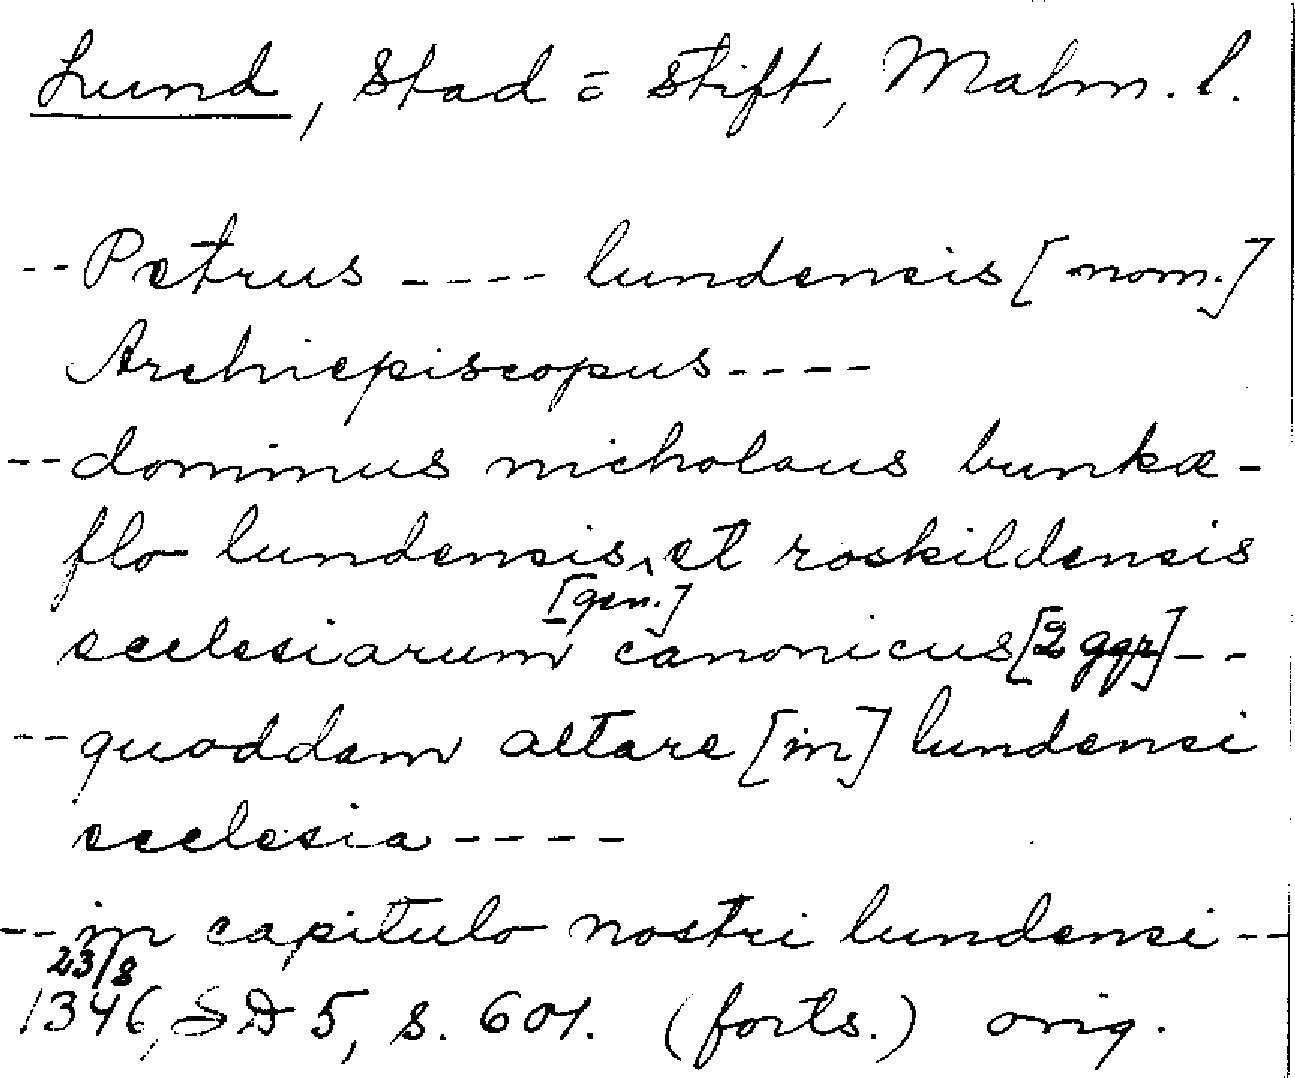 Lund, Stad = Stift, Malm. l.
-- Petrus ---- lundensis [nom.]
Archiepiscopus ----
-- dominus nicholaus bunkæ-
flo lundensis ‸ et roskildensis
[gen.]
ecclesiarum canonicus [2 ggr] --
-- quoddam altare [in] lundensi
ecclesia ----
-- in capitulo nostri lundensi --
23/8
1346, SD 5, s. 601. (forts.) orig.